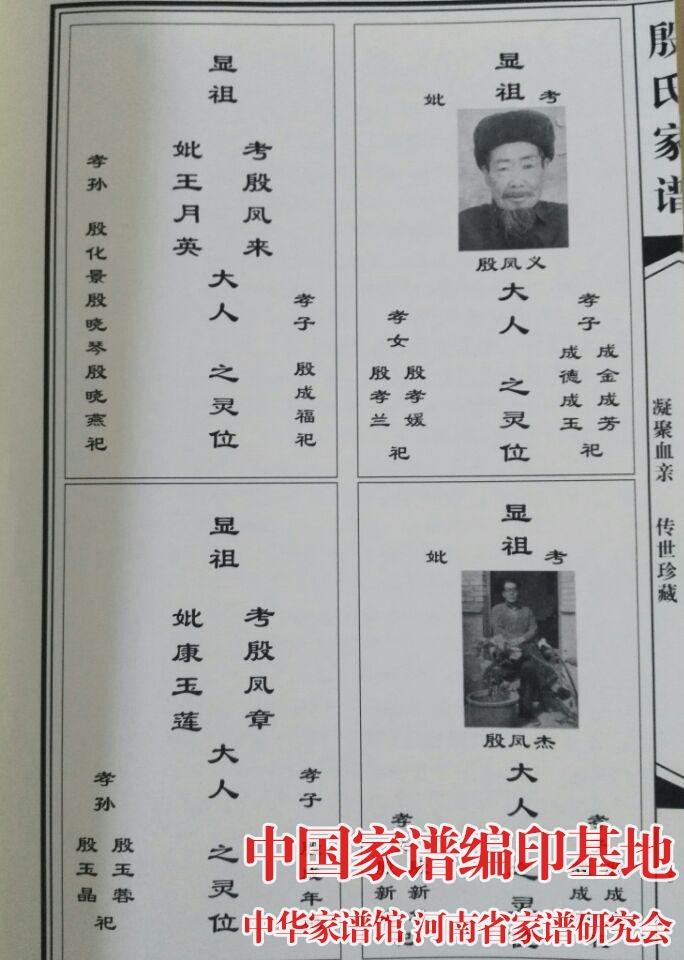 殷氏家谱
凝聚血亲 传世珍藏
显祖
考
妣
殷凤义
大人 之灵位
孝子
成金成芳
成德成玉
祀
孝女
殷孝媛
殷孝兰
祀
显祖
考殷凤来
妣王月英
大人 之灵位
孝子 殷成福祀
孝孙 殷化景殷晓琴殷晓燕祀
显祖
考
妣
殷凤杰
大人 之灵
成
成
孝
新
新
显祖
考殷凤章
妣康玉莲
大人 之灵位
孝子
年
孝孙
殷玉蓉
殷玉晶
祀
中国家谱编印基地
中华家谱馆 河南省家谱研究会